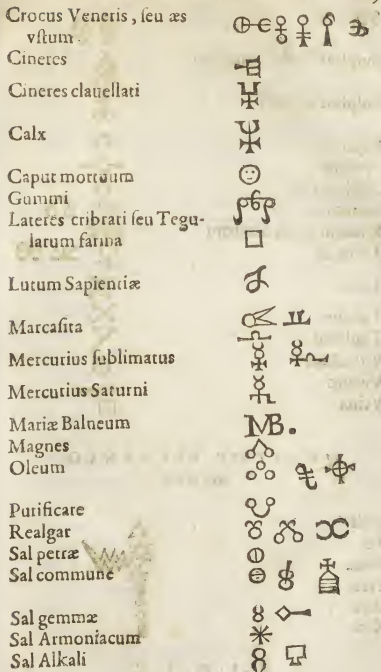 Crocus Veneris, ſeu æs
vſtum.
Cineres
Cineres clauellati
Calx
Caput mortuum
Gummi
Lateres cribrati ſeu Tegu-
larum farina
Lutum Sapientiæ
Marcaſita
Mercurius ſublimatus
Mercurius Saturni
Mariæ Balneum MB.
Magnes
Oleum
Purificare
Realgar
Sal petræ
Sal commune
Sal gemmæ
Sal Armoniacum
Sal Alkali